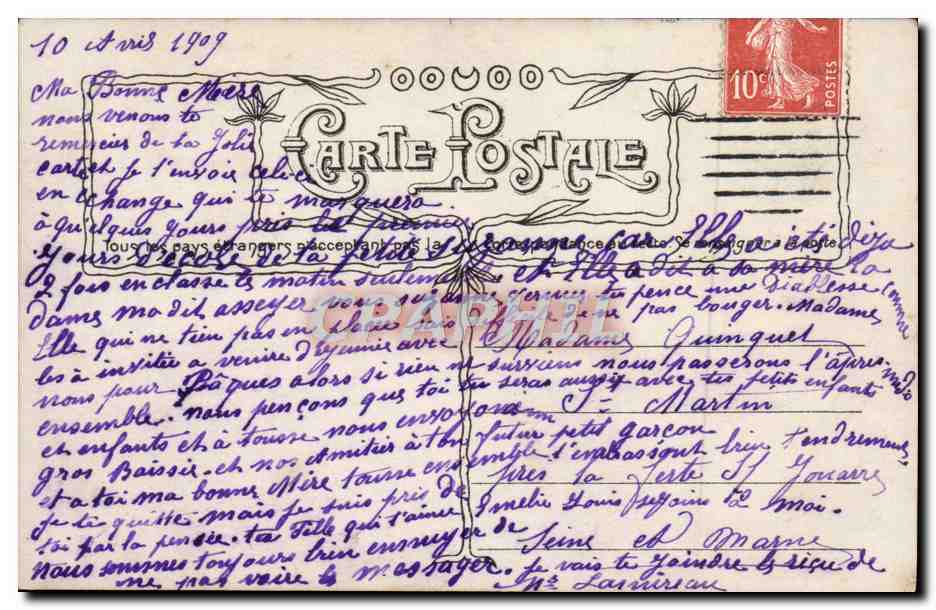 10 Avril 1909
Ma Bonne Mère
nous venons te
remercier de ta Jolie
carte et je t'envoie celle ci
en echange qui te marquera
à quelques Jours près les premiers
Jours d'école de ta petite Suzanne car Elle a été deja
2 fois en classe le matin seulement et Elle a dit a sa mère la
Dame ma dit asseyer vous Suzanne pence une Diablesse comme
Elle qui ne tien pas en place ne pas bouger. Madame
les à invitée a venire Dejeunier avec Madame Quinquet
nous pour Pâques alors si rien ne survient nous passerons l'après-midi
ensemble. nous pençons que toi tu seras aussi avec tes petits enfants
St Martin
et enfants et à tousse nous envoyons
futur petit garçon
gros Baissér. et nos Amitier à ton
et a toi ma bonne Mère tousse ensemble t'embrassont bien tendrement
près la Ferté St Jouarre
Je te quitte mais je suis près de
Emelie Louis Suzanne & moi.
toi par la pensée. ta Fille qui t'aime
Seine et Marne
nous sommes toujours bien ennuyer de
ne pas voire le messager. Je vais te Joindre le reçu de
Mr Lamireau
CARTE POSTALE
Tous les pays étrangers n'acceptent pas la correspondance au recto. Se renseigner à la poste
10c
POSTES
CPAPHIL